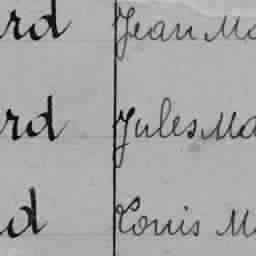 rd Jean Ma
rd Jules Ma
d Louis M